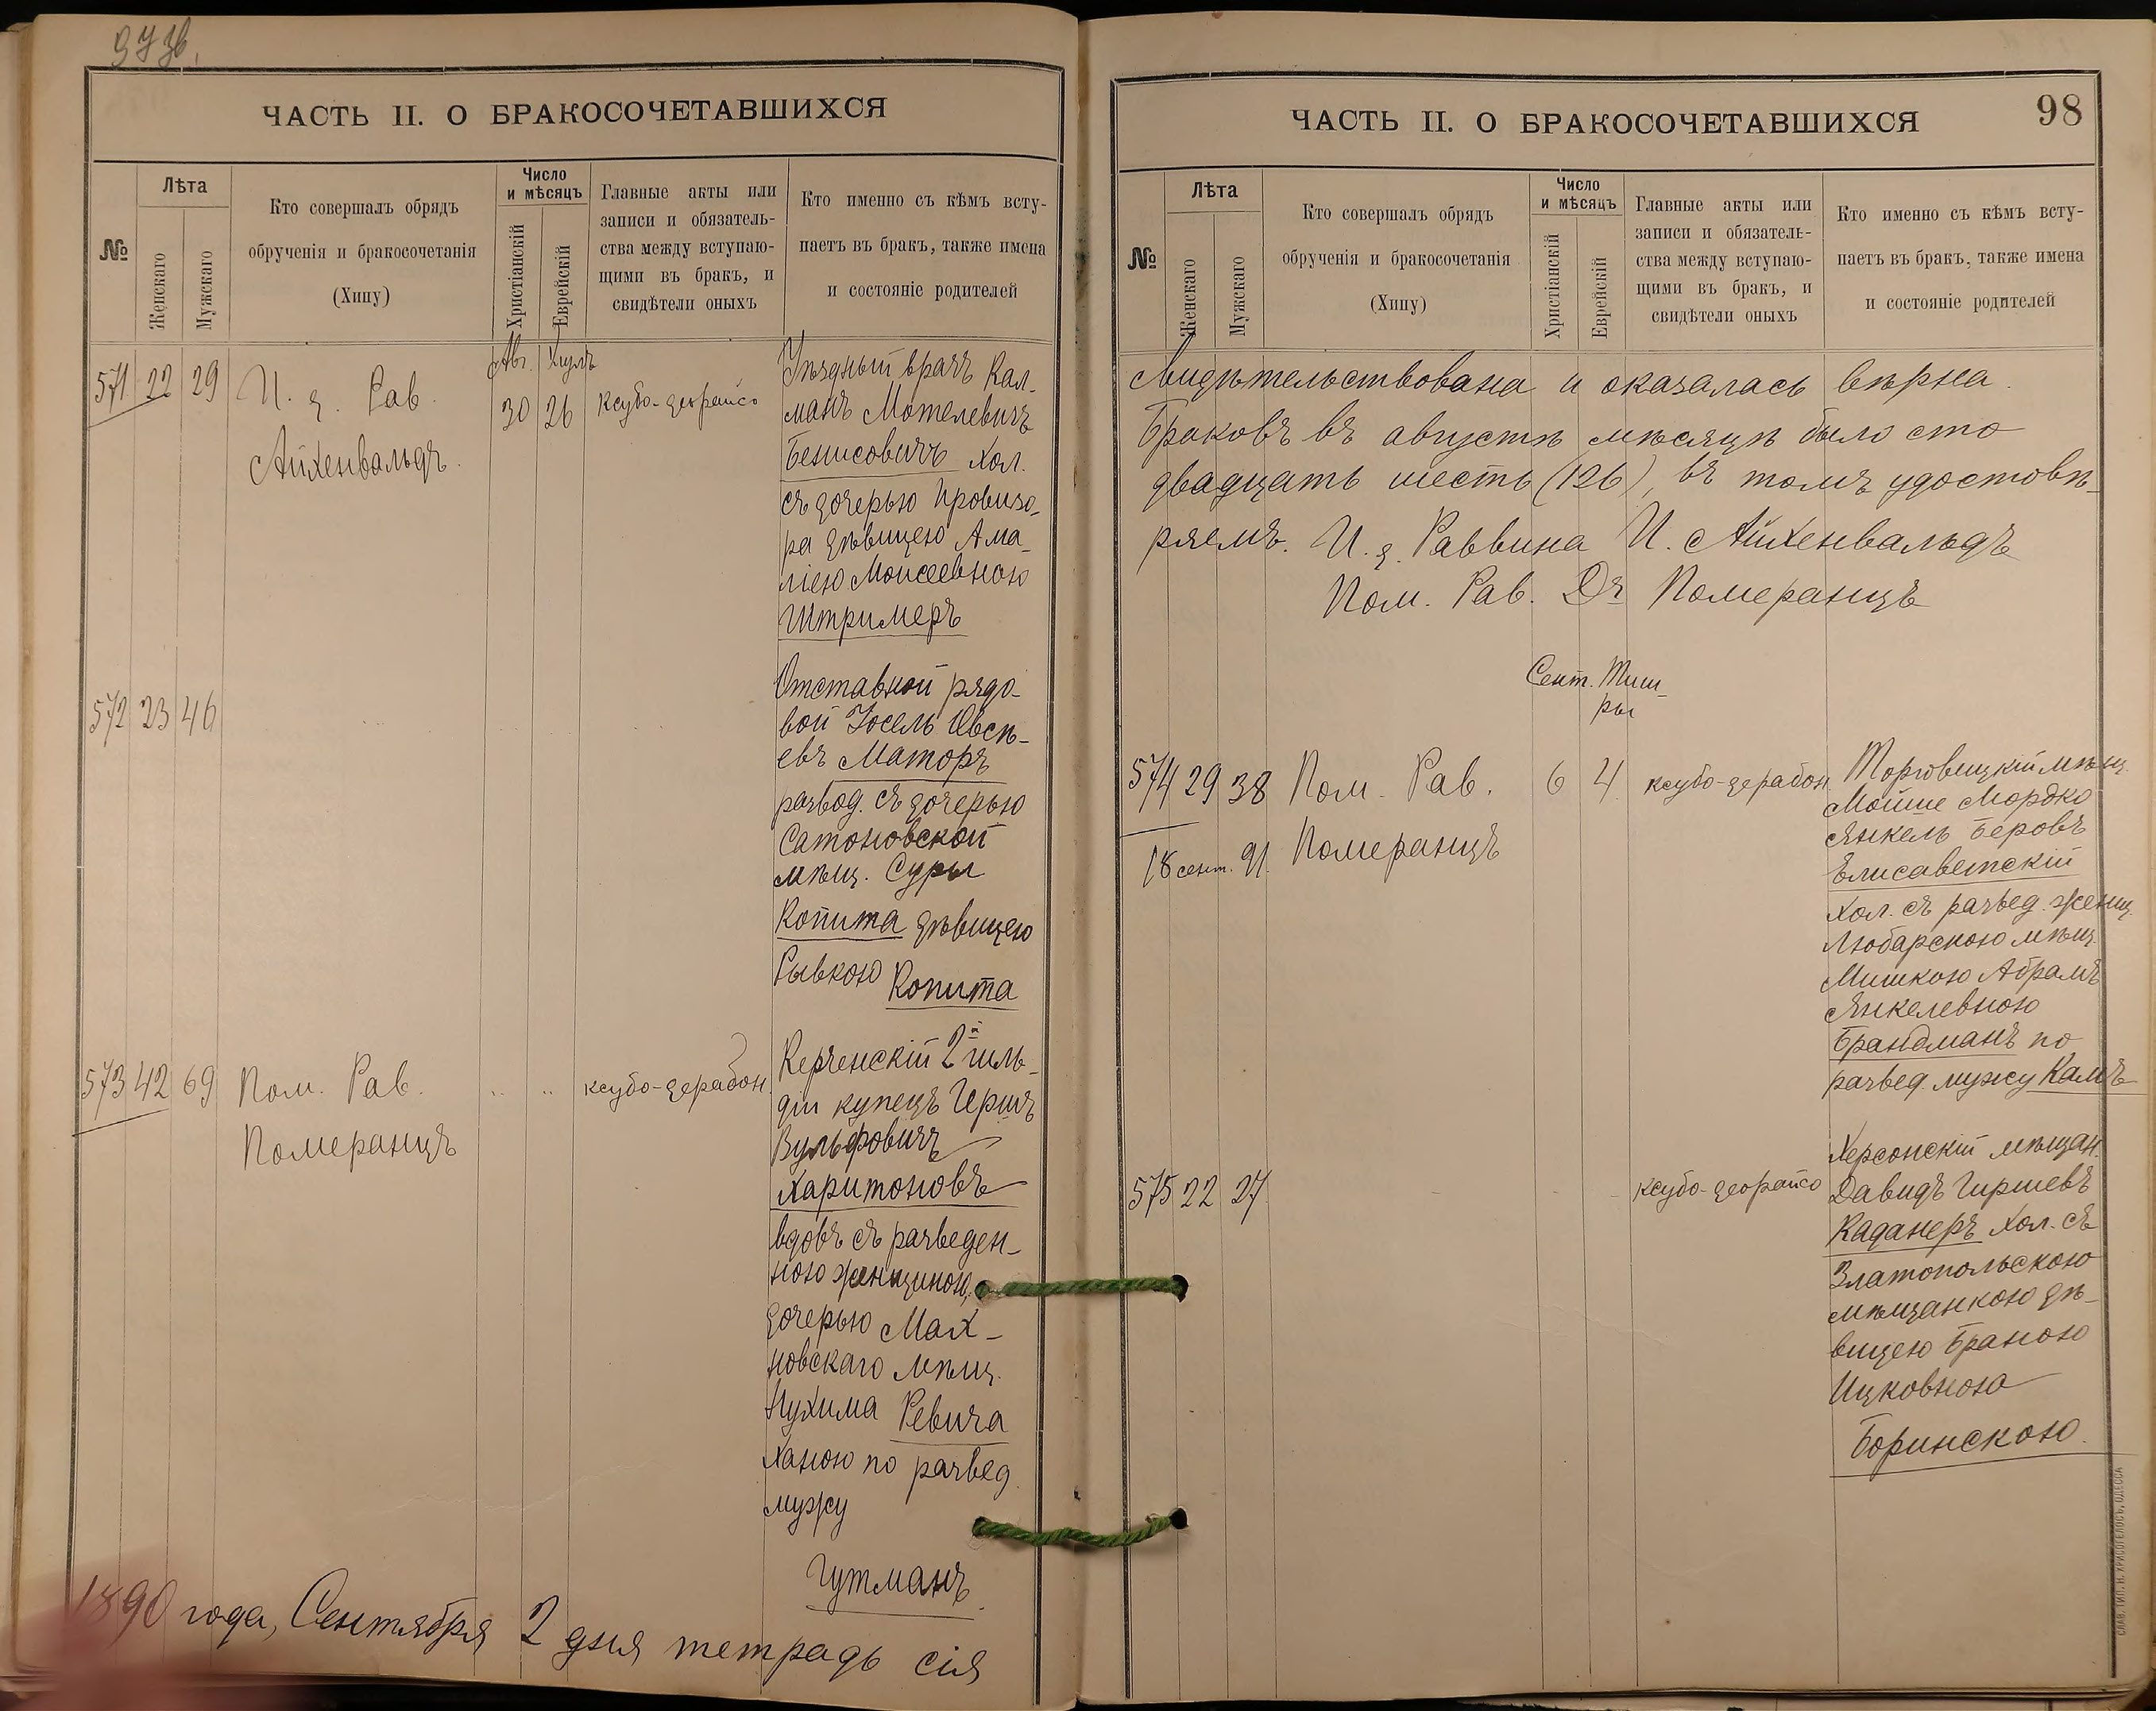 ЧАСТЬ II. О БРАКОСОЧЕТАВШИХСЯ
№
Лѣта
Женскаго
Мужскаго
Кто совершалъ обрядъ
обрученія и бракосочетанія
(Хипу)
Число
и мѣсяцъ
Христіанскій
Еврейскій
Главные акты или
записи и обязатель-
ства между вступаю-
щими въ бракъ, и
свидѣтели оныхъ
Кто именно съ кѣмъ всту-
паетъ въ бракъ, также имена
и состояніе родителей
571 22 29
И. д. Рав.
Айхенвальдъ.
Авг. Элулъ
30 26
ксубо-деорайсо
Уѣздный врачъ Кал-
манъ Мотелевичъ
Бенисовичъ хол.
съ дочерью провизо-
ра дѣвицею Ама-
ліею Моисеевною
Штримеръ
572 23 46
Отставной рядо-
вой Іосель Овсѣ-
евъ Маторъ
развод. съ дочерью
Сатоновской
мѣщ. Суры
Копита дѣвицею
Рывкою Копита
573 42 69
Пом. Рав.
Померанцъ
ксубо-дерабон
Керченскій 2й гиль-
діи купецъ Гершъ
Вульфовичъ
Харитоновъ
вдовъ съ разведен-
ною женщиною,
дочерью Мах-
новскаго мѣщ.
Нухима Ревича
Ханою по развед.
мужу
Гутманъ.
1890 года, Сентября 2 дня тетрадь сія
ЧАСТЬ II. О БРАКОСОЧЕТАВШИХСЯ
98
№
Лѣта
Женскаго
Мужскаго
Кто совершалъ обрядъ
обрученія и бракосочетанія
(Хипу)
Число
и мѣсяцъ
Христіанскій
Еврейскій
Главные акты или
записи и обязатель-
ства между вступаю-
щими въ бракъ, и
свидѣтели оныхъ
Кто именно съ кѣмъ всту-
паетъ въ бракъ, также имена
и состояніе родителей
свидѣтельствована и оказалась вѣрна.
Браковъ въ августѣ мѣсяцѣ было сто
двадцать шесть (126), въ томъ удостовѣ-
ряемъ. И. д. Раввина И. Айхенвальдъ
Пом. Рав. Dr Померанцъ
Сент. Тиш-
ры
574 29 38
18 сент. 91.
Пом. Рав.
Померанцъ
6 4
ксубо-дерабон
Торговицкій мѣщ.
Мойше Мордко
Янкель Беровъ
Елисаветскій
хол. съ развед. женщ.
Любарскою мѣщ.
Мишкою Абрамъ
Янкелевною
Брандманъ по
развед. мужу Камъ
575 22 27
ксубо-деорайсо
Херсонскій мѣщан.
Давидъ Гиршевъ
Каданеръ хол. съ
Златопольскою
мѣщанкою дѣ-
вицею Браною
Ицковною
Боринскою.
СЛАВ. ТИП. Н. ХРИСОГЕЛОСЪ, ОДЕССА